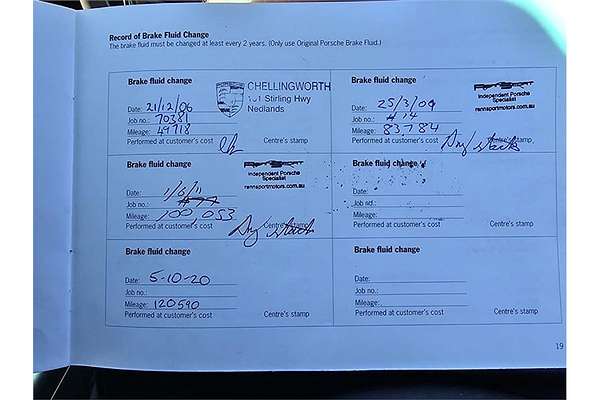 Record of Brake Fluid Change
The brake fluid must be changed at least every 2 years. (Only use Original Porsche Brake Fluid.)
Brake fluid change
Date: 21/12/06
Job no.: 70381
Mileage: 49718
Performed at customer's cost
CHELLINGWORTH
101 Stirling Hwy
Nedlands
Centre's stamp
Brake fluid change
Date: 25/3/09
Job no.:
Mileage: 83,784
Performed at customer's cost
Independent Porsche
Specialist
rennsportmotors.com.au
Centre's stamp
Brake fluid change
Date: 1/6/11
Job no.:
Mileage: 100,053
Performed at customer's cost
Independent Porsche
Specialist
rennsportmotors.com.au
Centre's stamp
Brake fluid change
Date:
Job no.:
Mileage:
Performed at customer's cost
Centre's stamp
Brake fluid change
Date: 5-10-20
Job no.:
Mileage: 120590
Performed at customer's cost
Centre's stamp
Brake fluid change
Date:
Job no.:
Mileage:
Performed at customer's cost
Centre's stamp
19